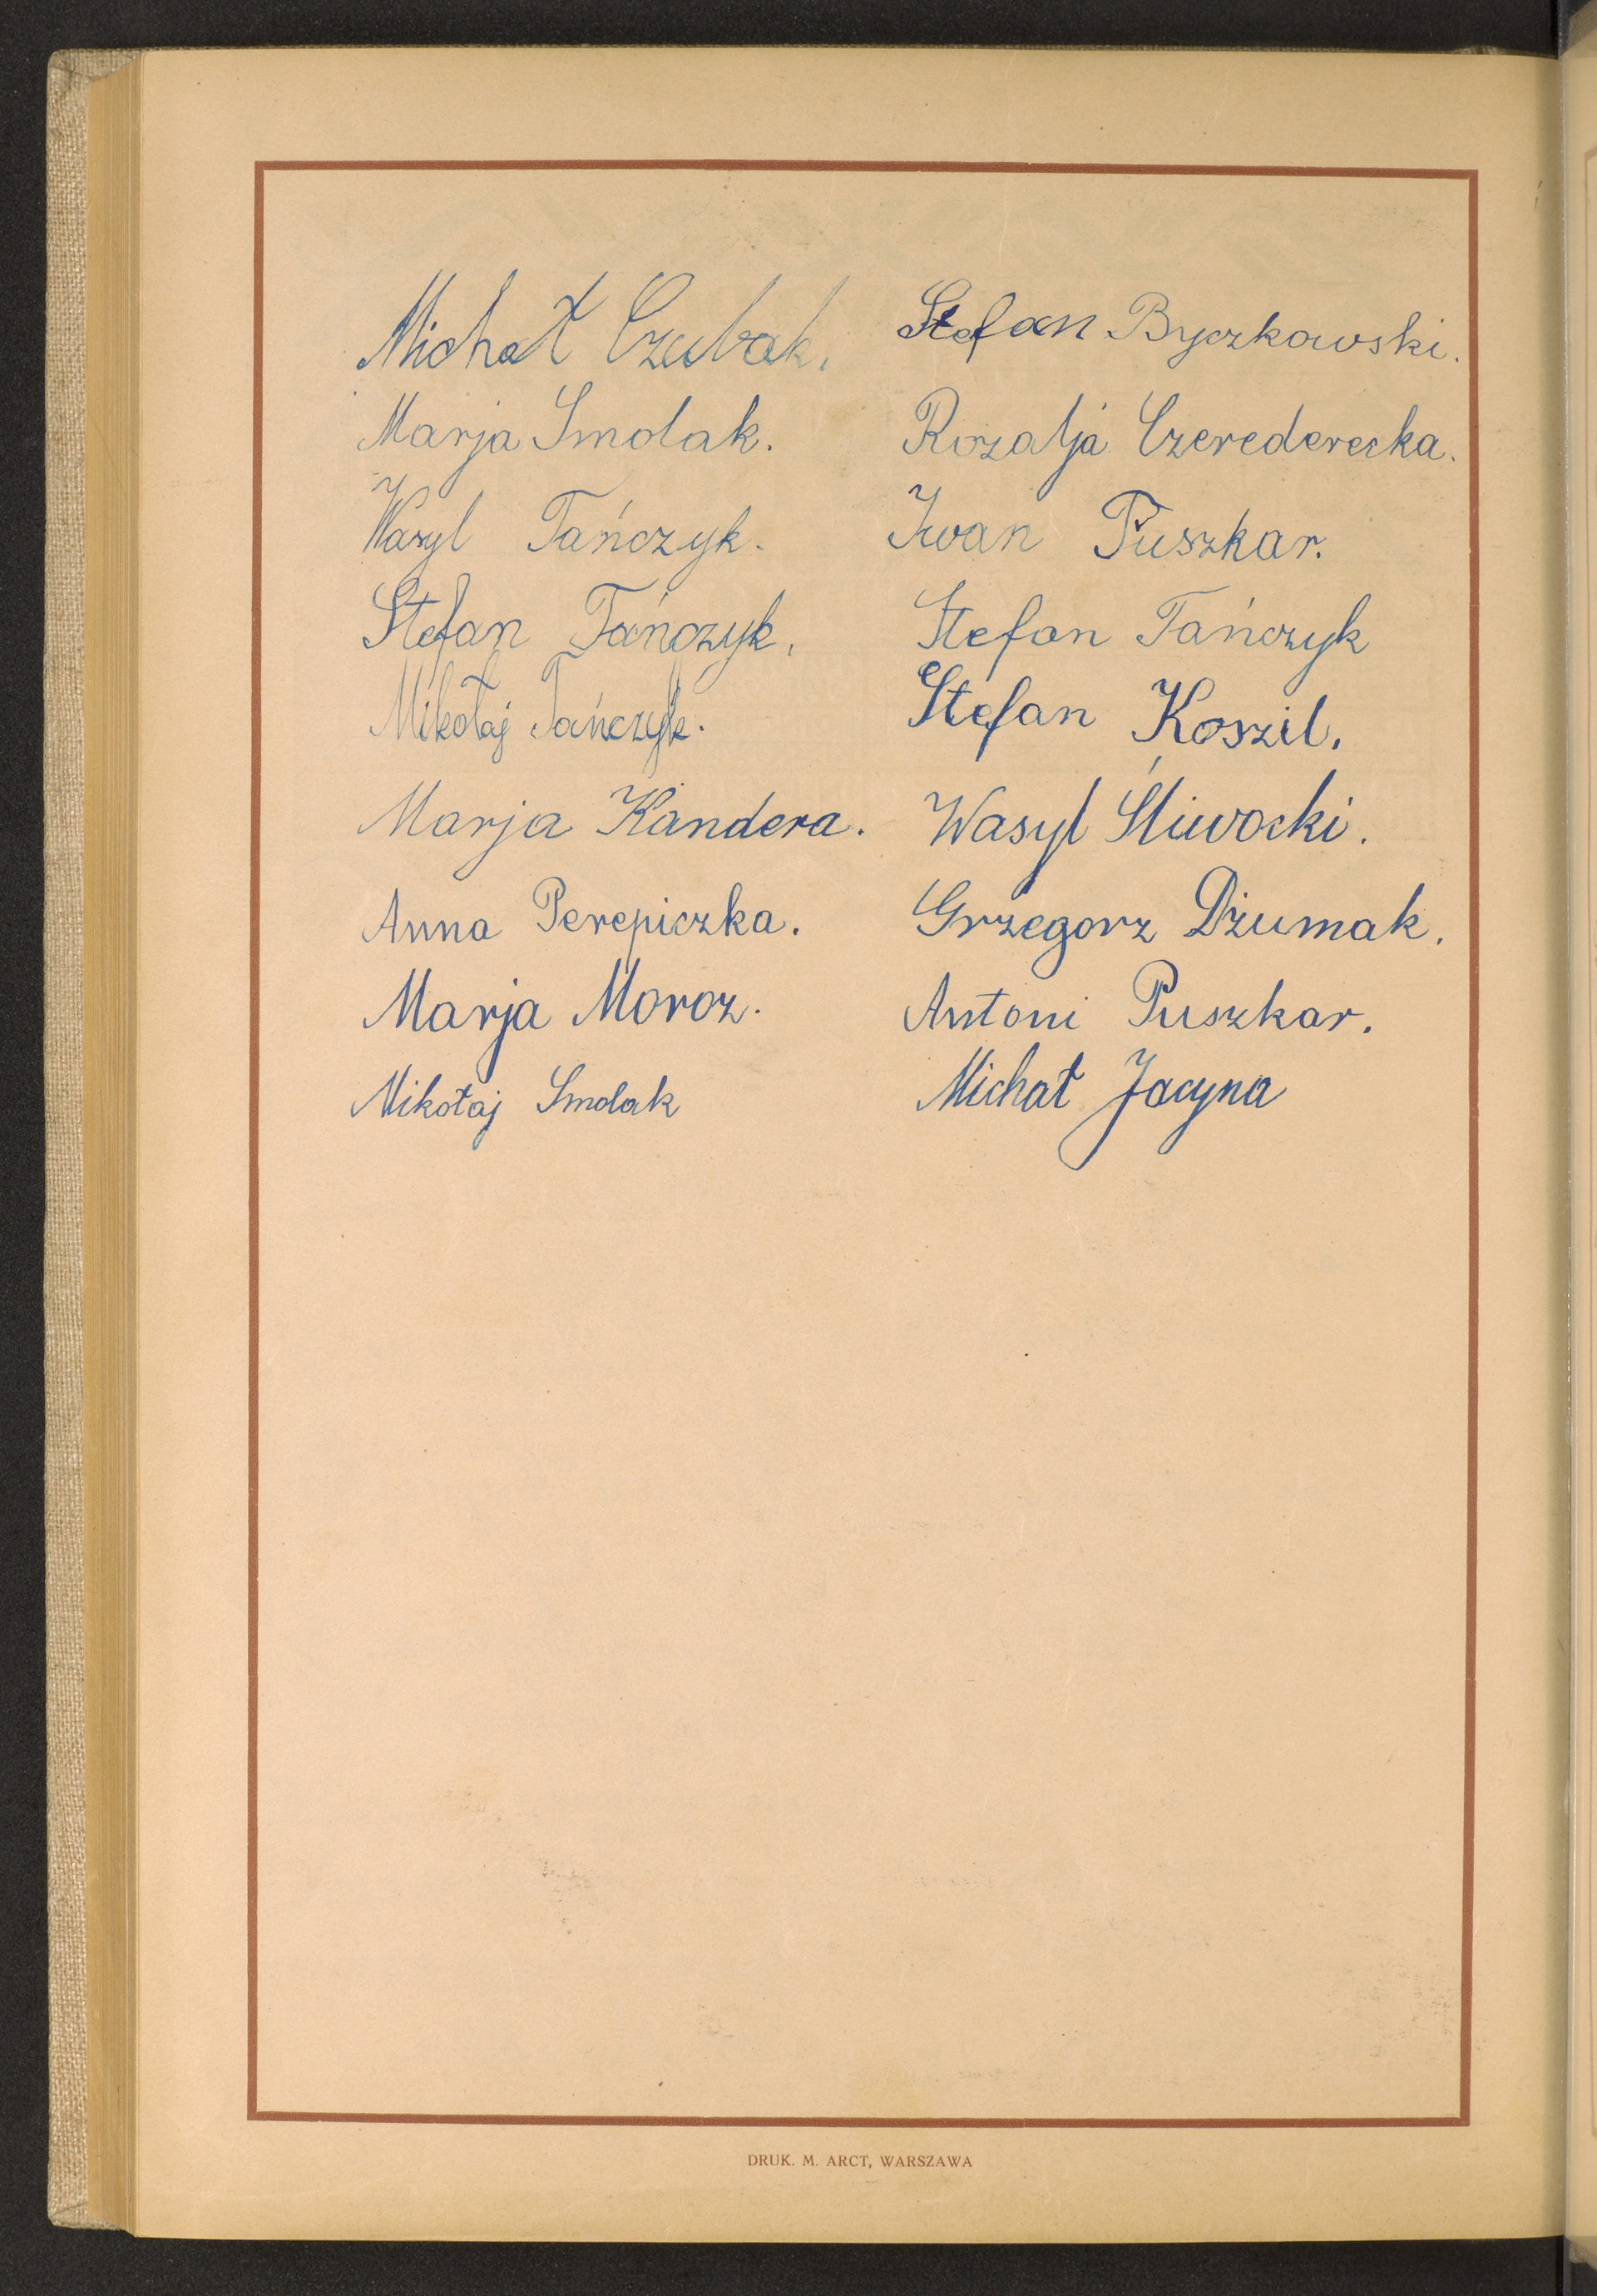 Michał Czubak.
Marja Smolak.
Wasyl Tańczyk.
Stefan Tańczyk.
Mikołaj Tańczyk.
Marja Kandera.
Anna Perepiczka.
Marja Moroz.
Mikołaj Smolak
Stefan Byczkowski.
Rozalja Czerederecka.
Iwan Puszkar.
Stefan Tańczyk
Stefan Koszil.
Wasyl Śliwocki.
Grzegorz Dżumak.
Antoni Puszkar.
Michał Jacyna
DRUK. M. ARCT, WARSZAWA